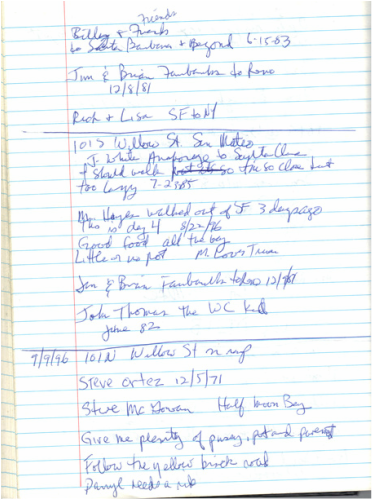 Friends
Billy & Frank
to Santa Barbara & Beyond 6-15-03
Jim & Brian Fairbanks to Reno
12/8/81
Rich & Lisa SF to NY
101 S Willow St. San Mateo
J. White Anchorage to Santa Clara
I should walk so close but
too lazy 7-23-05
walked out of SF 3 days ago
This is day 4 8/22/96
Good food all the way
Little or no pot M.
Jim & Brian Fairbanks to Reno
John Thomas the WC Kid
June 82
7/9/96 101 N Willow St
Steve Cortez 12/5/71
Steve McGowan Half Moon Bay
Give me plenty of pussy, pot and
Follow the yellow brick road
Darryl needs a ride